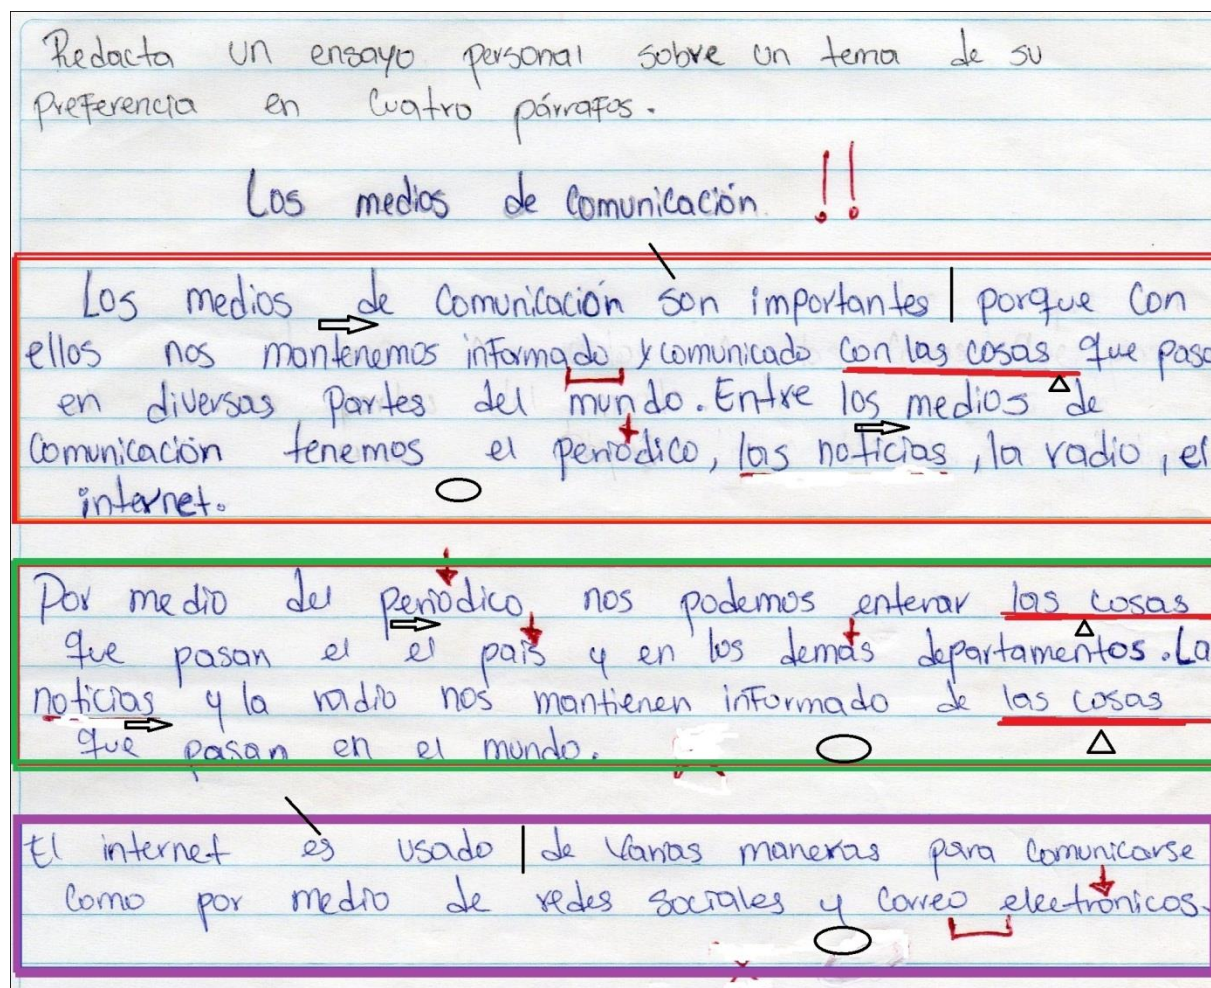 Redacta un ensayo personal sobre un tema de su
preferencia en cuatro párrafos.
Los medios de comunicación !!
Los medios de comunicación son importantes porque con
ellos nos mantenemos informado y comunicado con las cosas que pasa
en diversas partes del mundo. Entre los medios de
comunicación tenemos el periódico, las noticias, la radio, el
internet.
Por medio del periódico nos podemos enterar las cosas
que pasan el el país y en los demás departamentos. La
noticias y la radio nos mantienen informado de las cosas
que pasan en el mundo.
El internet es usado de varias maneras para comunicarse
como por medio de redes sociales y correo electrónicos.